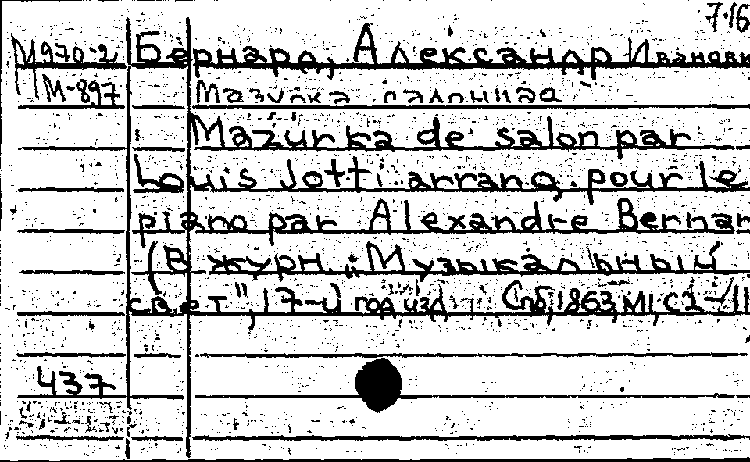 7-16
М970-2 Бернард, Александр Иванови
ПМ-897 Мазурка салонная
Mazurka de salon par
Louis Jotti arrang. pour le
piano par Alexandre Bernar
(В журн. „Музыкальный
свет", 17-й год изд. Спб, 1863, №1, С2-11
437